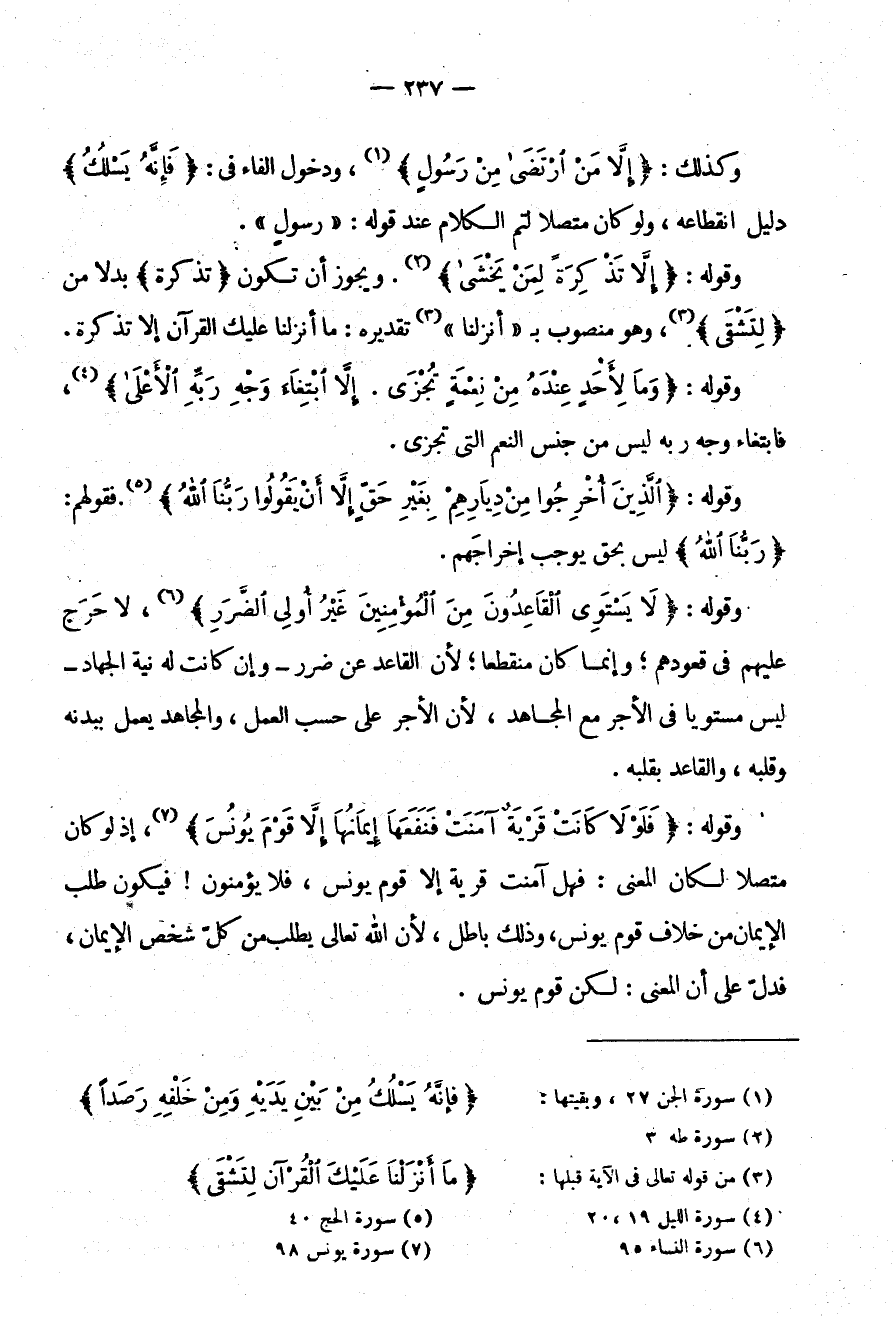 — ٢٣٧ —
وكذلك : ﴿ إِلَّا مَنْ ٱرْتَضَىٰ مِنْ رَسُولٍ ﴾ (١) ، ودخول الفاء فى : ﴿ فَإِنَّهُ يَسْلُكُ ﴾
دليل انقطاعه ، ولو كان متصلا لتم الكلام عند قوله : « رسولٍ » .
وقوله : ﴿ إِلَّا تَذْكِرَةً لِمَنْ يَخْشَىٰ ﴾ (٢) . ويجوز أن تكون ﴿ تذكرة ﴾ بدلا من
﴿ لِتَشْقَى ﴾ (٣) ، وهو منصوب بـ « أنزلنا » (٣) تقديره : ما أنزلنا عليك القرآن إلا تذكرة .
وقوله : ﴿ وَمَا لِأَحَدٍ عِنْدَهُ مِنْ نِعْمَةٍ تُجْزَى . إِلَّا ٱبْتِغَاءَ وَجْهِ رَبِّهِ ٱلْأَعْلَىٰ ﴾ (٤) ،
فابتغاء وجه ربه ليس من جنس النعم التى تجزى .
وقوله : ﴿ ٱلَّذِينَ أُخْرِجُوا مِنْ دِيَارِهِمْ بِغَيْرِ حَقٍّ إِلَّا أَنْ يَقُولُوا رَبُّنَا ٱللهُ ﴾ (٥) . فقولهم :
﴿ رَبُّنَا ٱللهُ ﴾ ليس بحق يوجب إخراجَهم .
وقوله : ﴿ لَا يَسْتَوِى ٱلْقَاعِدُونَ مِنَ ٱلْمُؤمِنِينَ غَيْرُ أُولِى ٱلضَّرَرِ ﴾ (٦) ، لا حَرَج
عليهم فى قعودهم ؛ وإنما كان منقطعا ؛ لأن القاعد عن ضرر – وإن كانت له نية الجهاد –
ليس مستويا فى الأجر مع المجاهد ، لأن الأجر على حسب العمل ، والمجاهد يعمل ببدنه
وقلبه ، والقاعد بقلبه .
وقوله : ﴿ فَلَوْلَا كَانَتْ قَرْيَةٌ آمَنَتْ فَنَفَعَهَا إِيمَانُهَا إِلَّا قَوْمَ يُونُسَ ﴾ (٧) ، إذ لو كان
متصلا لكان المعنى : فهل آمنت قرية إلا قوم يونس ، فلا يؤمنون ! فيكون طلب
الإيمان من خلاف قوم يونس، وذلك باطل ، لأن الله تعالى يطلب من كلّ شخص الإيمان ،
فدلّ على أن المعنى : لكن قوم يونس .
(١) سورة الجن ٢٧ ، وبقيتها : ﴿ فإِنَّهُ يَسْلُكُ مِنْ بَيْنِ يَدَيْهِ وَمِنْ خَلْفِهِ رَصَداً ﴾
(٢) سورة طه ٣
(٣) من قوله تعالى فى الآية قبلها : ﴿ مَا أَنْزَلْنَا عَلَيْكَ ٱلْقُرْآن لِتَشْقَى ﴾
(٤) سورة الليل ١٩ ، ٢٠ (٥) سورة الحج ٤٠
(٦) سورة النساء ٩٥ (٧) سورة يونس ٩٨